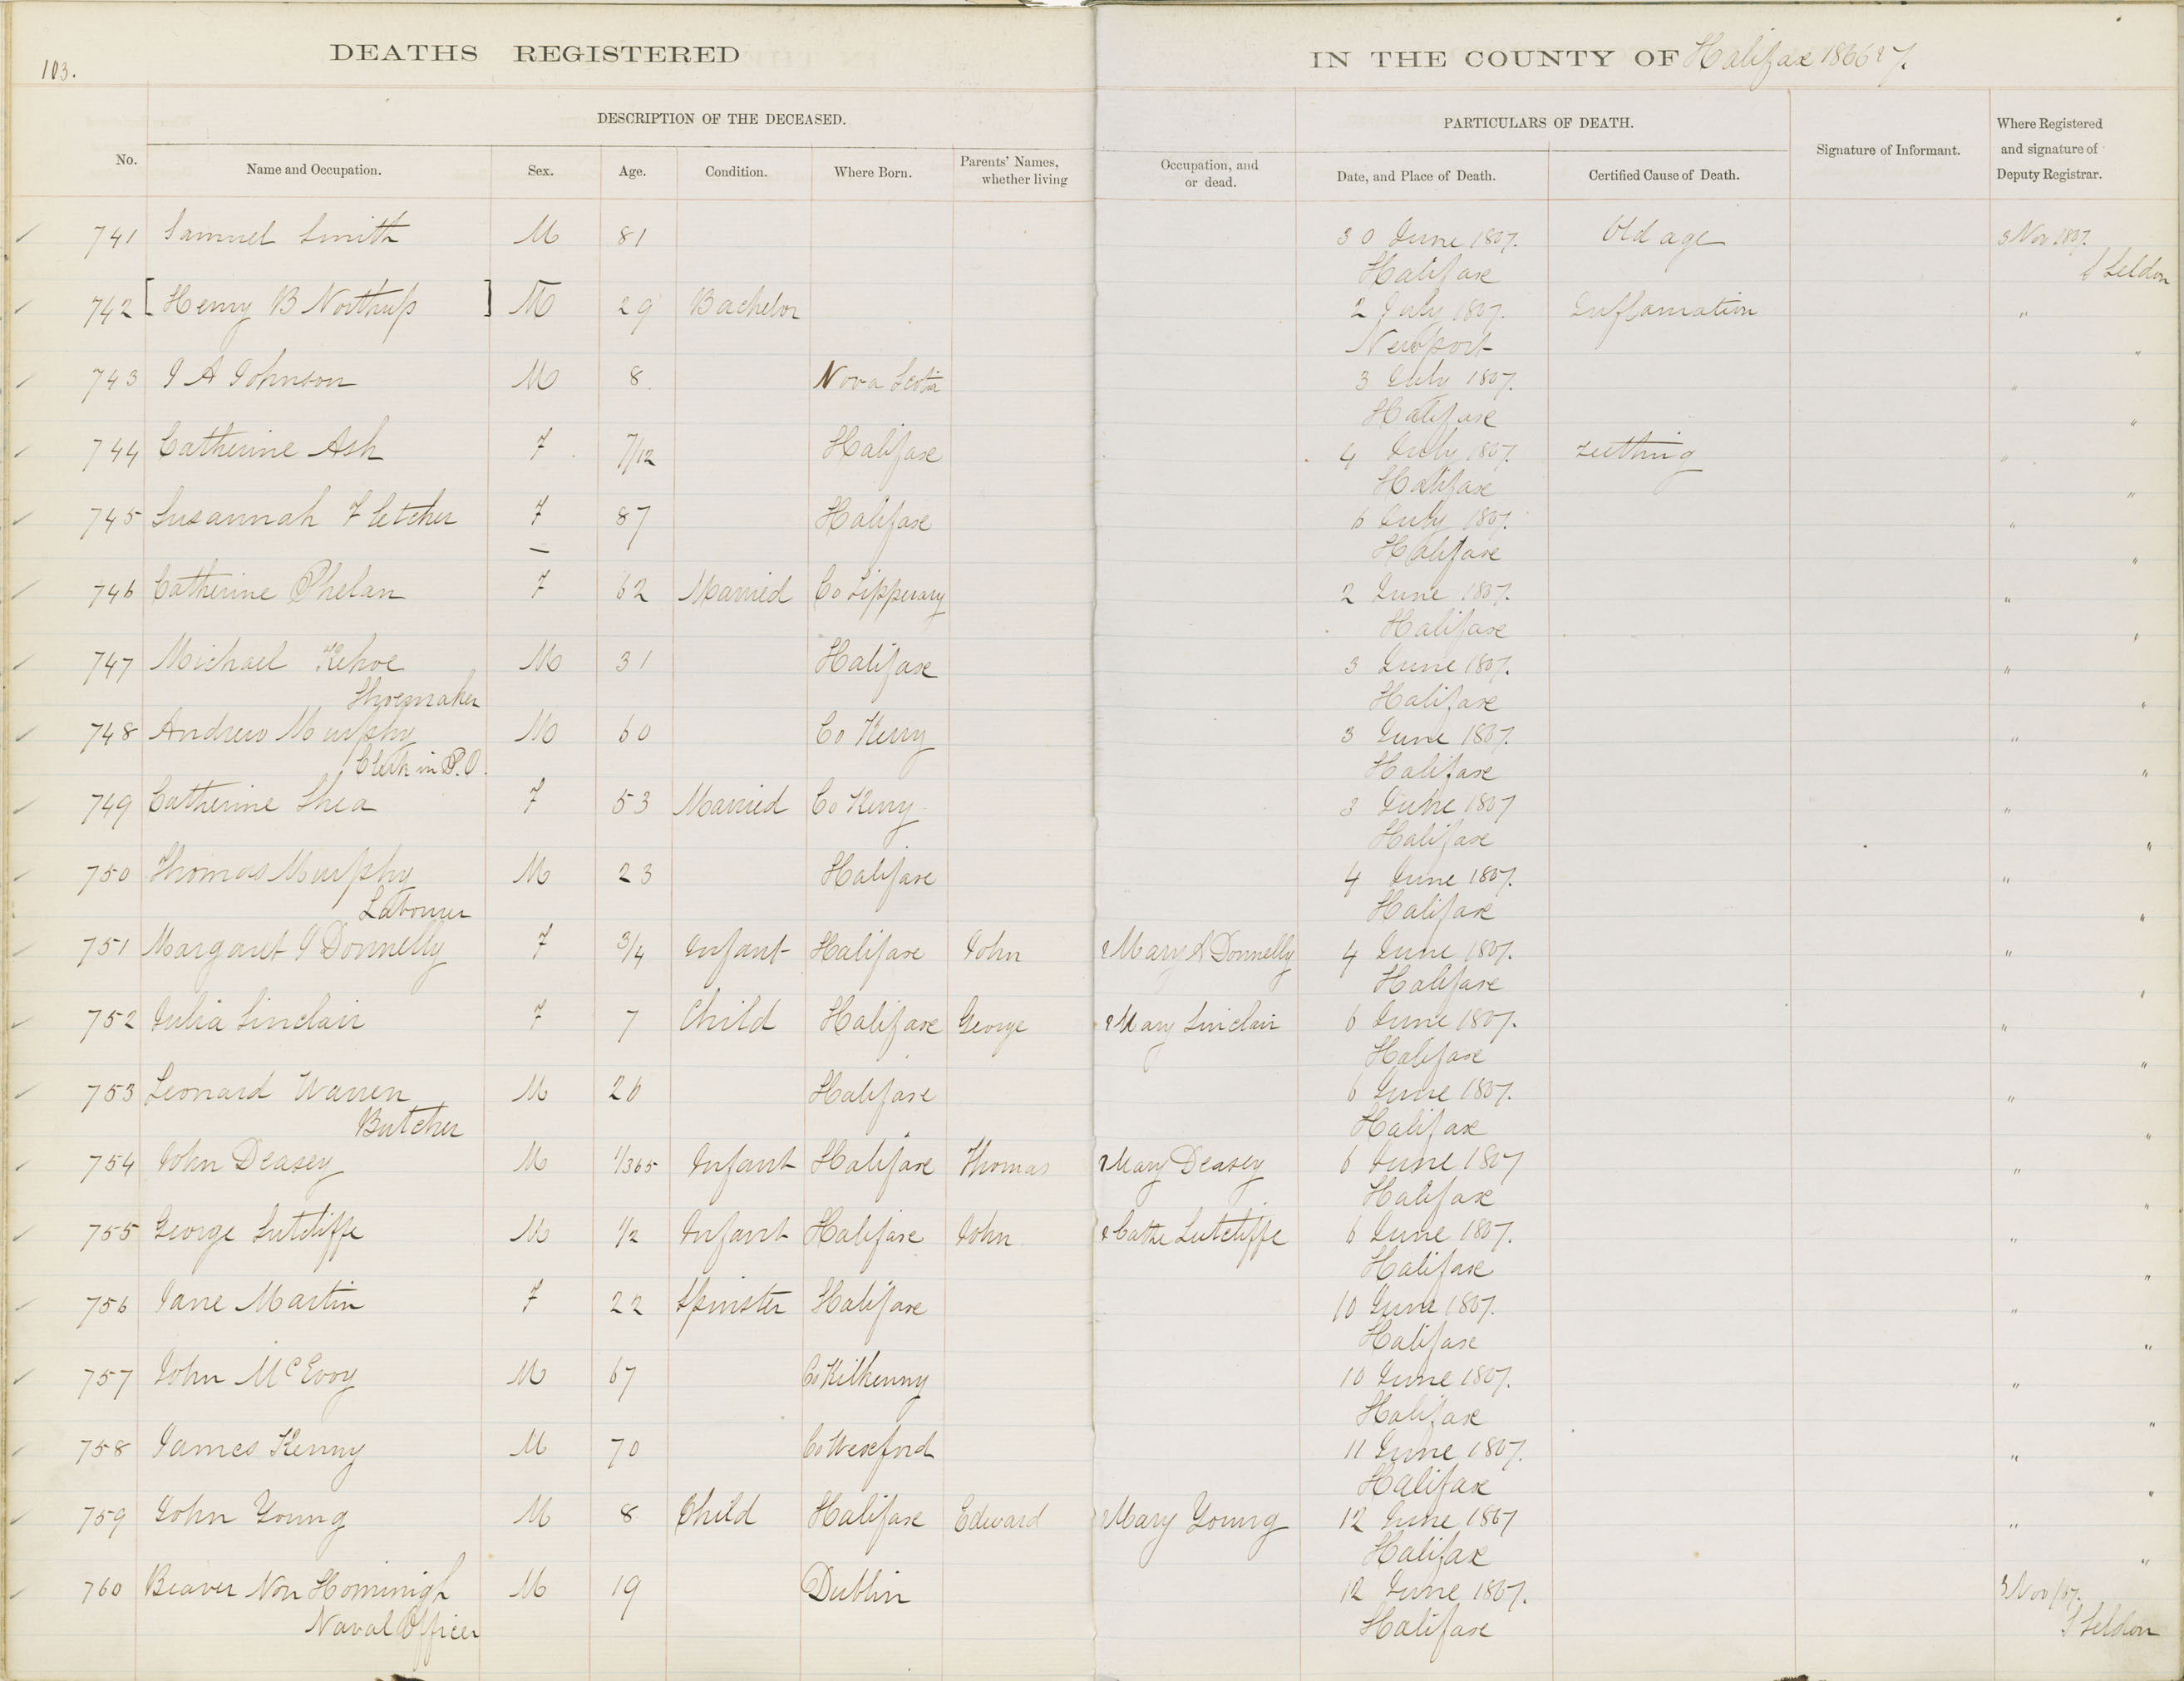 103.
DEATHS REGISTERED IN THE COUNTY OF Halifax 1866 & 7.
DESCRIPTION OF THE DECEASED. PARTICULARS OF DEATH.
No. Name and Occupation. Sex. Age. Condition. Where Born. Parents' Names, whether living Occupation, and or dead. Date, and Place of Death. Certified Cause of Death. Signature of Informant. Where Registered and signature of Deputy Registrar.
741 Samuel Smith M 81 30 June 1867. Old age 3 Nov 1867.
Halifax Seldon
742 [Henry B Northup] M 29 Bachelor 2 July 1867. Inflamation "
Newport "
743 J A Johnson M 8 Nova Scotia 3 July 1867. "
Halifax "
744 Catherine Ash F 7/12 Halifax 4 July 1867. Teething "
Halifax "
745 Susannah Fletcher F 87 Halifax 6 July 1867. "
— Halifax "
746 Catherine Phelan F 62 Married Co Tipperary 2 June 1867. "
Halifax "
747 Michael Kehoe M 31 Halifax 3 June 1867. "
Shoemaker Halifax "
748 Andrew Murphy M 60 Co Kerry 3 June 1867. "
Clerk in P.O. Halifax "
749 Catherine Shea F 53 Married Co Kerry 3 June 1867 "
Halifax "
750 Thomas Murphy M 23 Halifax 4 June 1867. "
Labourer Halifax "
751 Margaret J Donnelly F 3/4 Infant Halifax John & Mary A Donnelly 4 June 1867. "
Halifax "
752 Julia Sinclair F 7 Child Halifax George & Mary Sinclair 6 June 1867. "
Halifax "
753 Leonard Warren M 26 Halifax 6 June 1867. "
Butcher Halifax "
754 John Deasey M 1/365 Infant Halifax Thomas & Mary Deasey 6 June 1867 "
Halifax "
755 George Sutcliffe M 1/2 Infant Halifax John & Cathe Sutcliffe 6 June 1867. "
Halifax "
756 Jane Martin F 22 Spinster Halifax 10 June 1867. "
Halifax "
757 John McEvoy M 67 Co Kilkenny 10 June 1867. "
Halifax "
758 James Kenny M 70 Co Wexford 11 June 1867. "
Halifax "
759 John Young M 8 Child Halifax Edward & Mary Young 12 June 1867 "
Halifax "
760 Beaver Non Hominigh M 19 Dublin 12 June 1867. 3 Nov /67.
Naval Officer Halifax Seldon